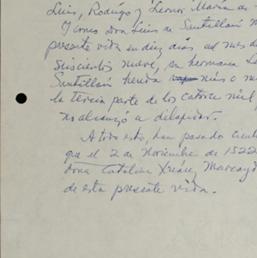 Luis, Rodrigo y Leonor María de
Y como don Luis de Santillán m
presente vida en diez días del mes de
seiscientos nueve, su hermana L
Santillán hereda niños o m
la tercia parte de los catorce mil
no alcanzó a dilapidar.
A todo esto, han pasado cient
que el 2 de Noviembre de 1522
doña Catalina
de esta presente vida.